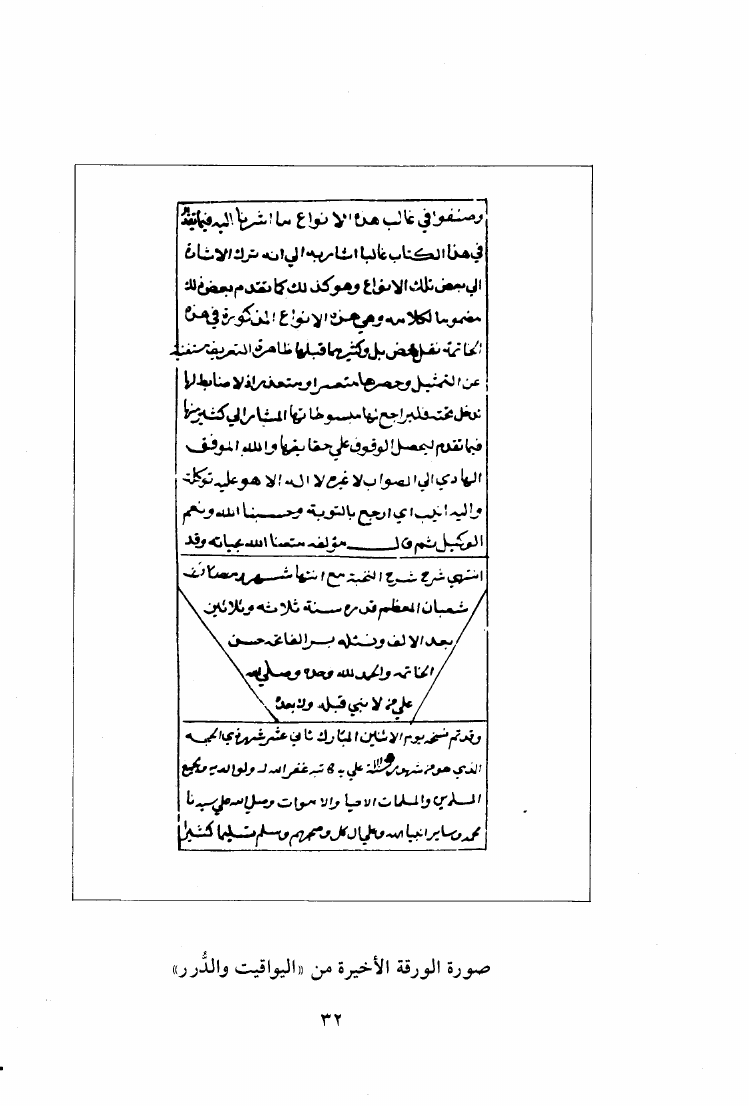 وصنفوا في غالب هذه الانواع ما اشرنا اليه فيما تقدم
في هذا الكتاب غالبا اشار به الى انه ترك الاشارة
الى بعض تلك الانواع وهو كذلك كما تقدم بعض ذلك
مضموما لكلامه وهي هذه الانواع المذكورة في هذه
الخاتمة نقل محض بل وكثير مما قبلها ظاهرة التعريف مستغنية
عن التمثيل وحصرها متعسر او متعذر اذ لا ضابط لها
تدخل تحته فليراجع لها مبسوطاتها المشار الى كثير منها
فيما تقدم ليحصل الوقوف على حقايقها والله الموفق
الهادي الى الصواب لا غيره لا اله الا هو عليه توكلت
واليه انيب اي ارجع بالتوبة وحسبنا الله ونعم
الوكيل ثم قال مؤلفه متعنا الله بحياته وقد
انتهى شرح شرح النخبة مع انتهاء شهر
شعبان المعظم قدره سنة ثلاثه وثلاثين
بعد الالف ونسئله بسر الفاتحه حسن
الخاتمه والحمد لله وحده وصلى الله
على من لا نبي قبله ولا بعده
وقد تم نسخه يوم الاثنين المبارك ثاني عشر شهر ذي الحجه
الذي هو من شهور سنة غفر الله له ولوالديه ولجميع
المسلمين والمسلمات الاحياء والاموات وصلى الله على سيدنا
محمد وساير انبياء الله وعلى آل كل وصحبهم وسلم تسليما كثيرا
صورة الورقة الأخيرة من «اليواقيت والدُّرر»
٣٢